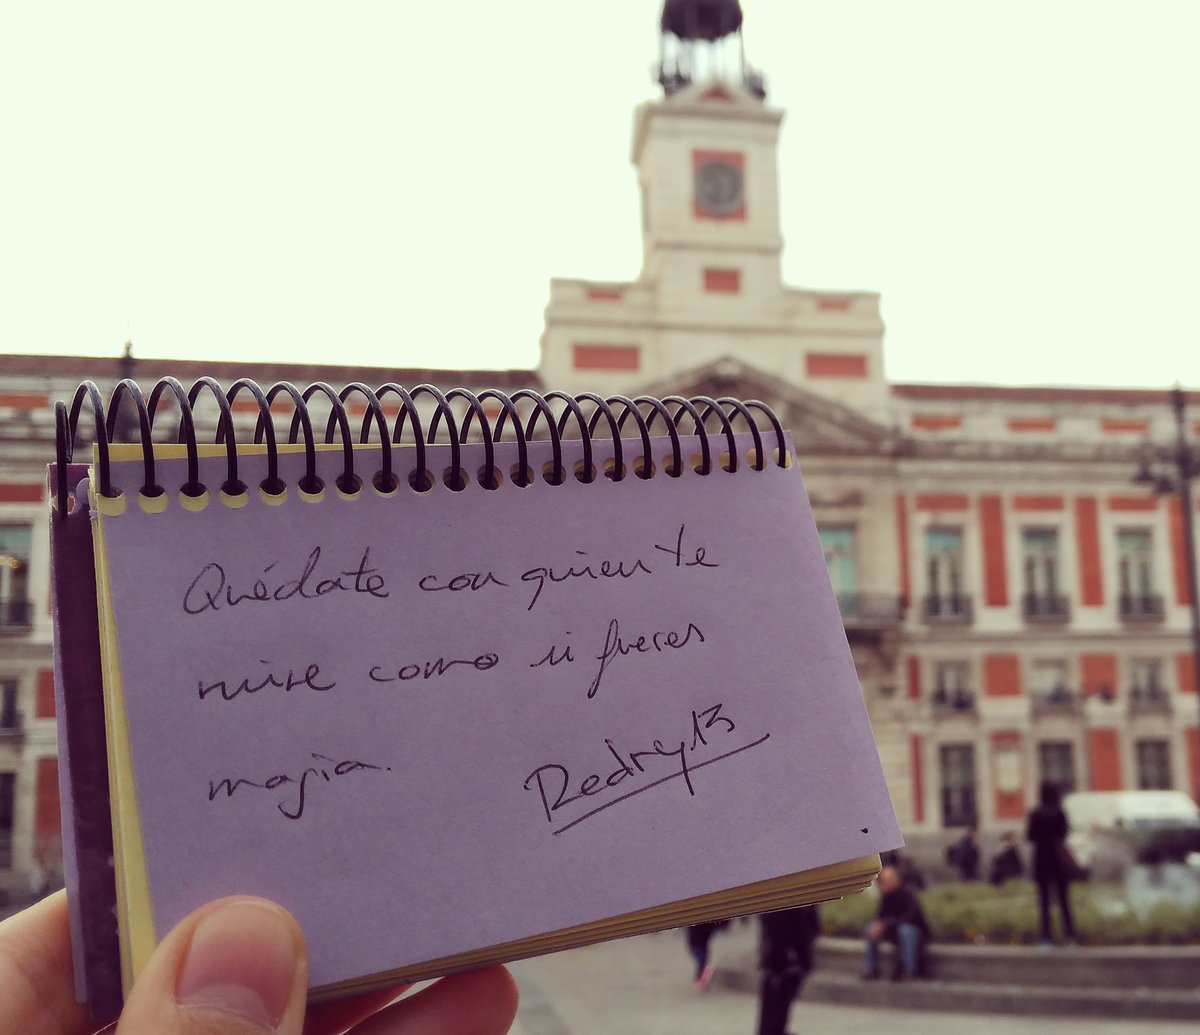 Quédate con quien te
mire como si fueras
magia.
Redry13